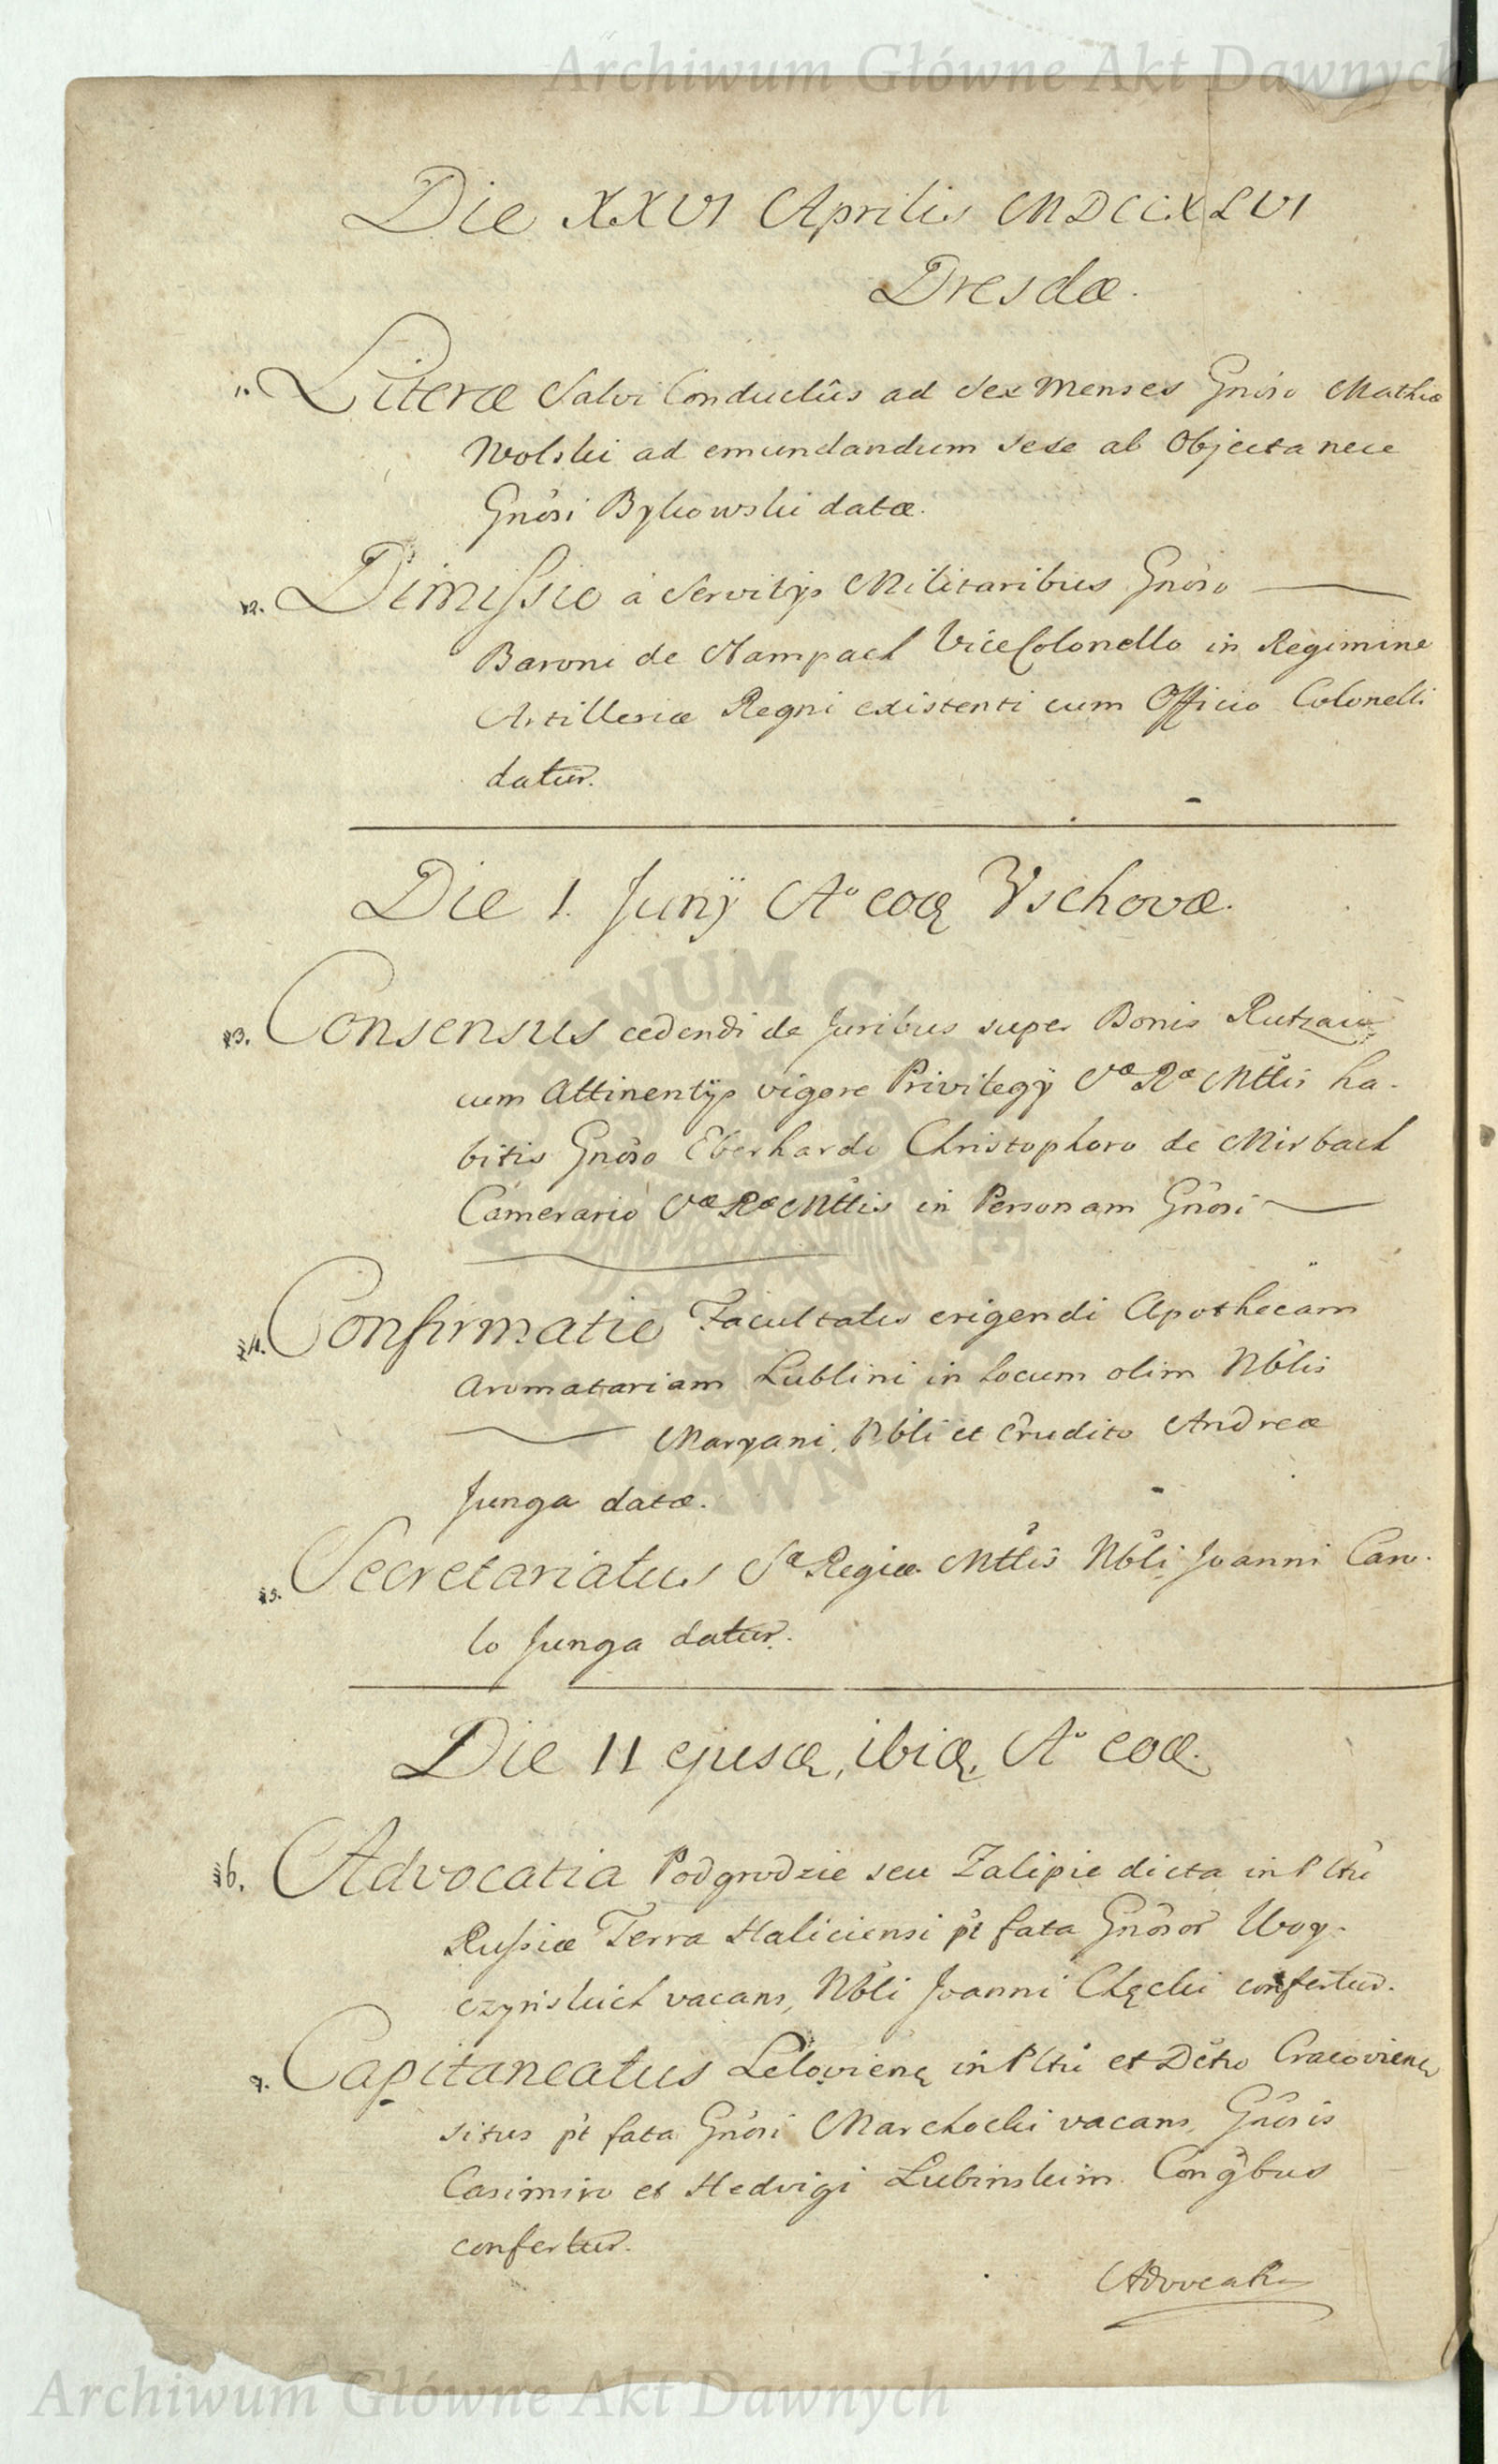 Archiwum Główne Akt Dawnych
Die XXVI Aprilis MDCCXLVI
Dresdæ.
1. Literæ Salvi Conductûs ad sex Menses Gnõso Mathiæ
Wolski ad emundandum sese ab Objecta nece
Gnõsi Bykowski datæ.
2. Dimissio a Servitijs Militaribus Gnõso
Baroni de Vice Colonello in Regimine
Artilleriæ Regni existenti cum Officio Colonelli
datur.
Die 1. Junij Aº eoq Vschovæ.
3. Consensus cedendi de Juribus super Bonis
cum Attinentijs vigore Privilegij Sæ Ræ Mttis ha-
bitis Gnõso Eberhardo Christophoro de Mirbach
Camerario Sæ Ræ Mttis in Personam Gnõsi
4. Confirmatio Facultatis erigendi Apothecam
Aromatariam Lublini in Locum olim Nblis
Maryani, Nbli et Erudito Andreæ
Junga datæ.
5. Secretariatus Sæ Regiæ Mttis Nbli Joanni Caro-
lo Junga datur.
Die 11 ejusq, ibiq, Aº eoq.
6. Advocatia Podgrodzie seu Zalipie dicta in Pltu
Russiæ Terra Haliciensi pt fata Gnõsor Woy-
czyńskich vacans, Nbli Joanni Chęcki confertur.
7. Capitaneatus Leloviens in Pltu et Dctu Cracoviens
situs pt fata Gnõsi Marchocki vacans, Gnõsis
Casimiro et Hedvigi Lubinskim Conjbus
confertur.
Advocatia
Archiwum Główne Akt Dawnych